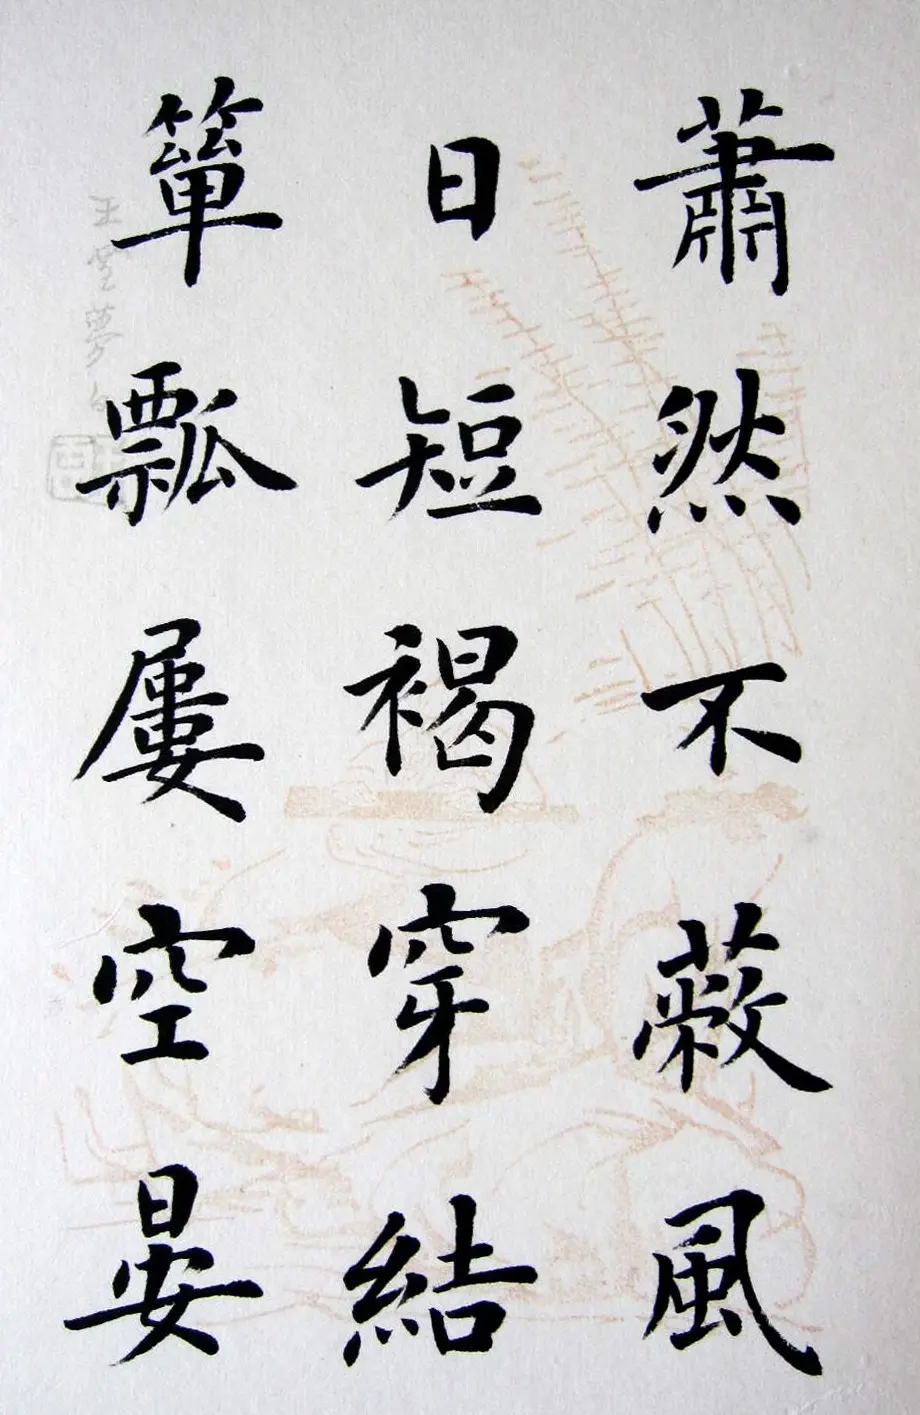 蕭然不蔽風
日短褐穿結
簞瓢屢空晏